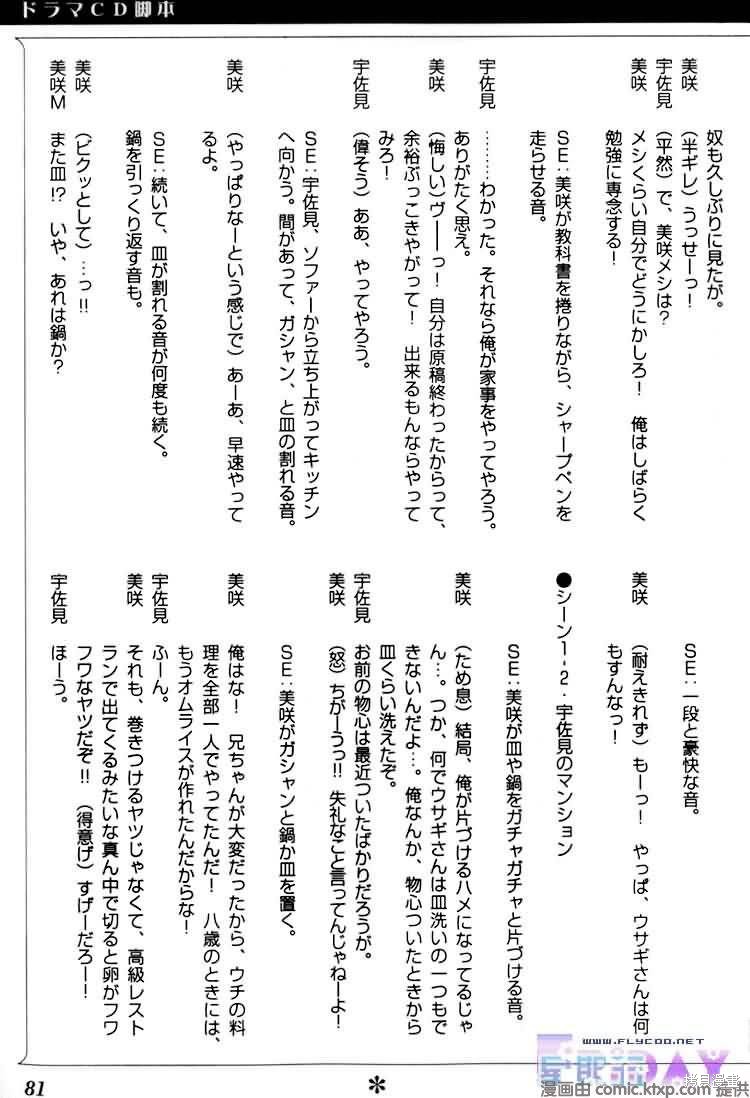 ドラマCD脚本
奴も久しぶりに見たが。
美咲 (半ギレ)うっせーっ!
宇佐見 (平然)で、美咲メシは?
美咲 メシくらい自分でどうにかしろ! 俺はしばらく
勉強に専念する!
SE:美咲が教科書を捲りながら、シャープペンを
走らせる音。
宇佐見 ………わかった。それなら俺が家事をやってやろう。
ありがたく思え。
美咲 (悔しい)ヴーーっ! 自分は原稿終わったからって、
余裕ぶっこきやがって! 出来るもんならやって
みろ!
宇佐見 (偉そう)ああ、やってやろう。
SE:宇佐見、ソファーから立ち上がってキッチン
へ向かう。間があって、ガシャン、と皿の割れる音。
美咲 (やっぱりなーという感じで)あーあ、早速やって
るよ。
SE:続いて、皿が割れる音が何度も続く。
鍋を引っくり返す音も。
美咲 (ビクッとして)…っ!!
美咲M また皿!? いや、あれは鍋か?
SE:一段と豪快な音。
美咲 (耐えきれず)もーっ! やっぱ、ウサギさんは何
もすんなっ!
●シーン1-2・宇佐見のマンション
SE:美咲が皿や鍋をガチャガチャと片づける音。
美咲 (ため息)結局、俺が片づけるハメになってるじゃ
ん…。つか、何でウサギさんは皿洗いの一つもで
きないんだよ…。俺なんか、物心ついたときから
皿くらい洗えたぞ。
宇佐見 お前の物心は最近ついたばかりだろうが。
美咲 (怒)ちがーうっ!! 失礼なこと言ってんじゃねーよ!
SE:美咲がガシャンと鍋か皿を置く。
美咲 俺はな! 兄ちゃんが大変だったから、ウチの料
理を全部一人でやってたんだ! 八歳のときには、
もうオムライスが作れたんだからな!
宇佐見 ふーん。
美咲 それも、巻きつけるヤツじゃなくて、高級レスト
ランで出てくるみたいな真ん中で切ると卵がフワ
フワなヤツだぞ!! (得意げ)すげーだろー!
宇佐見 ほーう。
81
*
WWW.FLYCOO.NET
DAY
拷貝漫畫
漫画由 comic.ktxp.com 提供